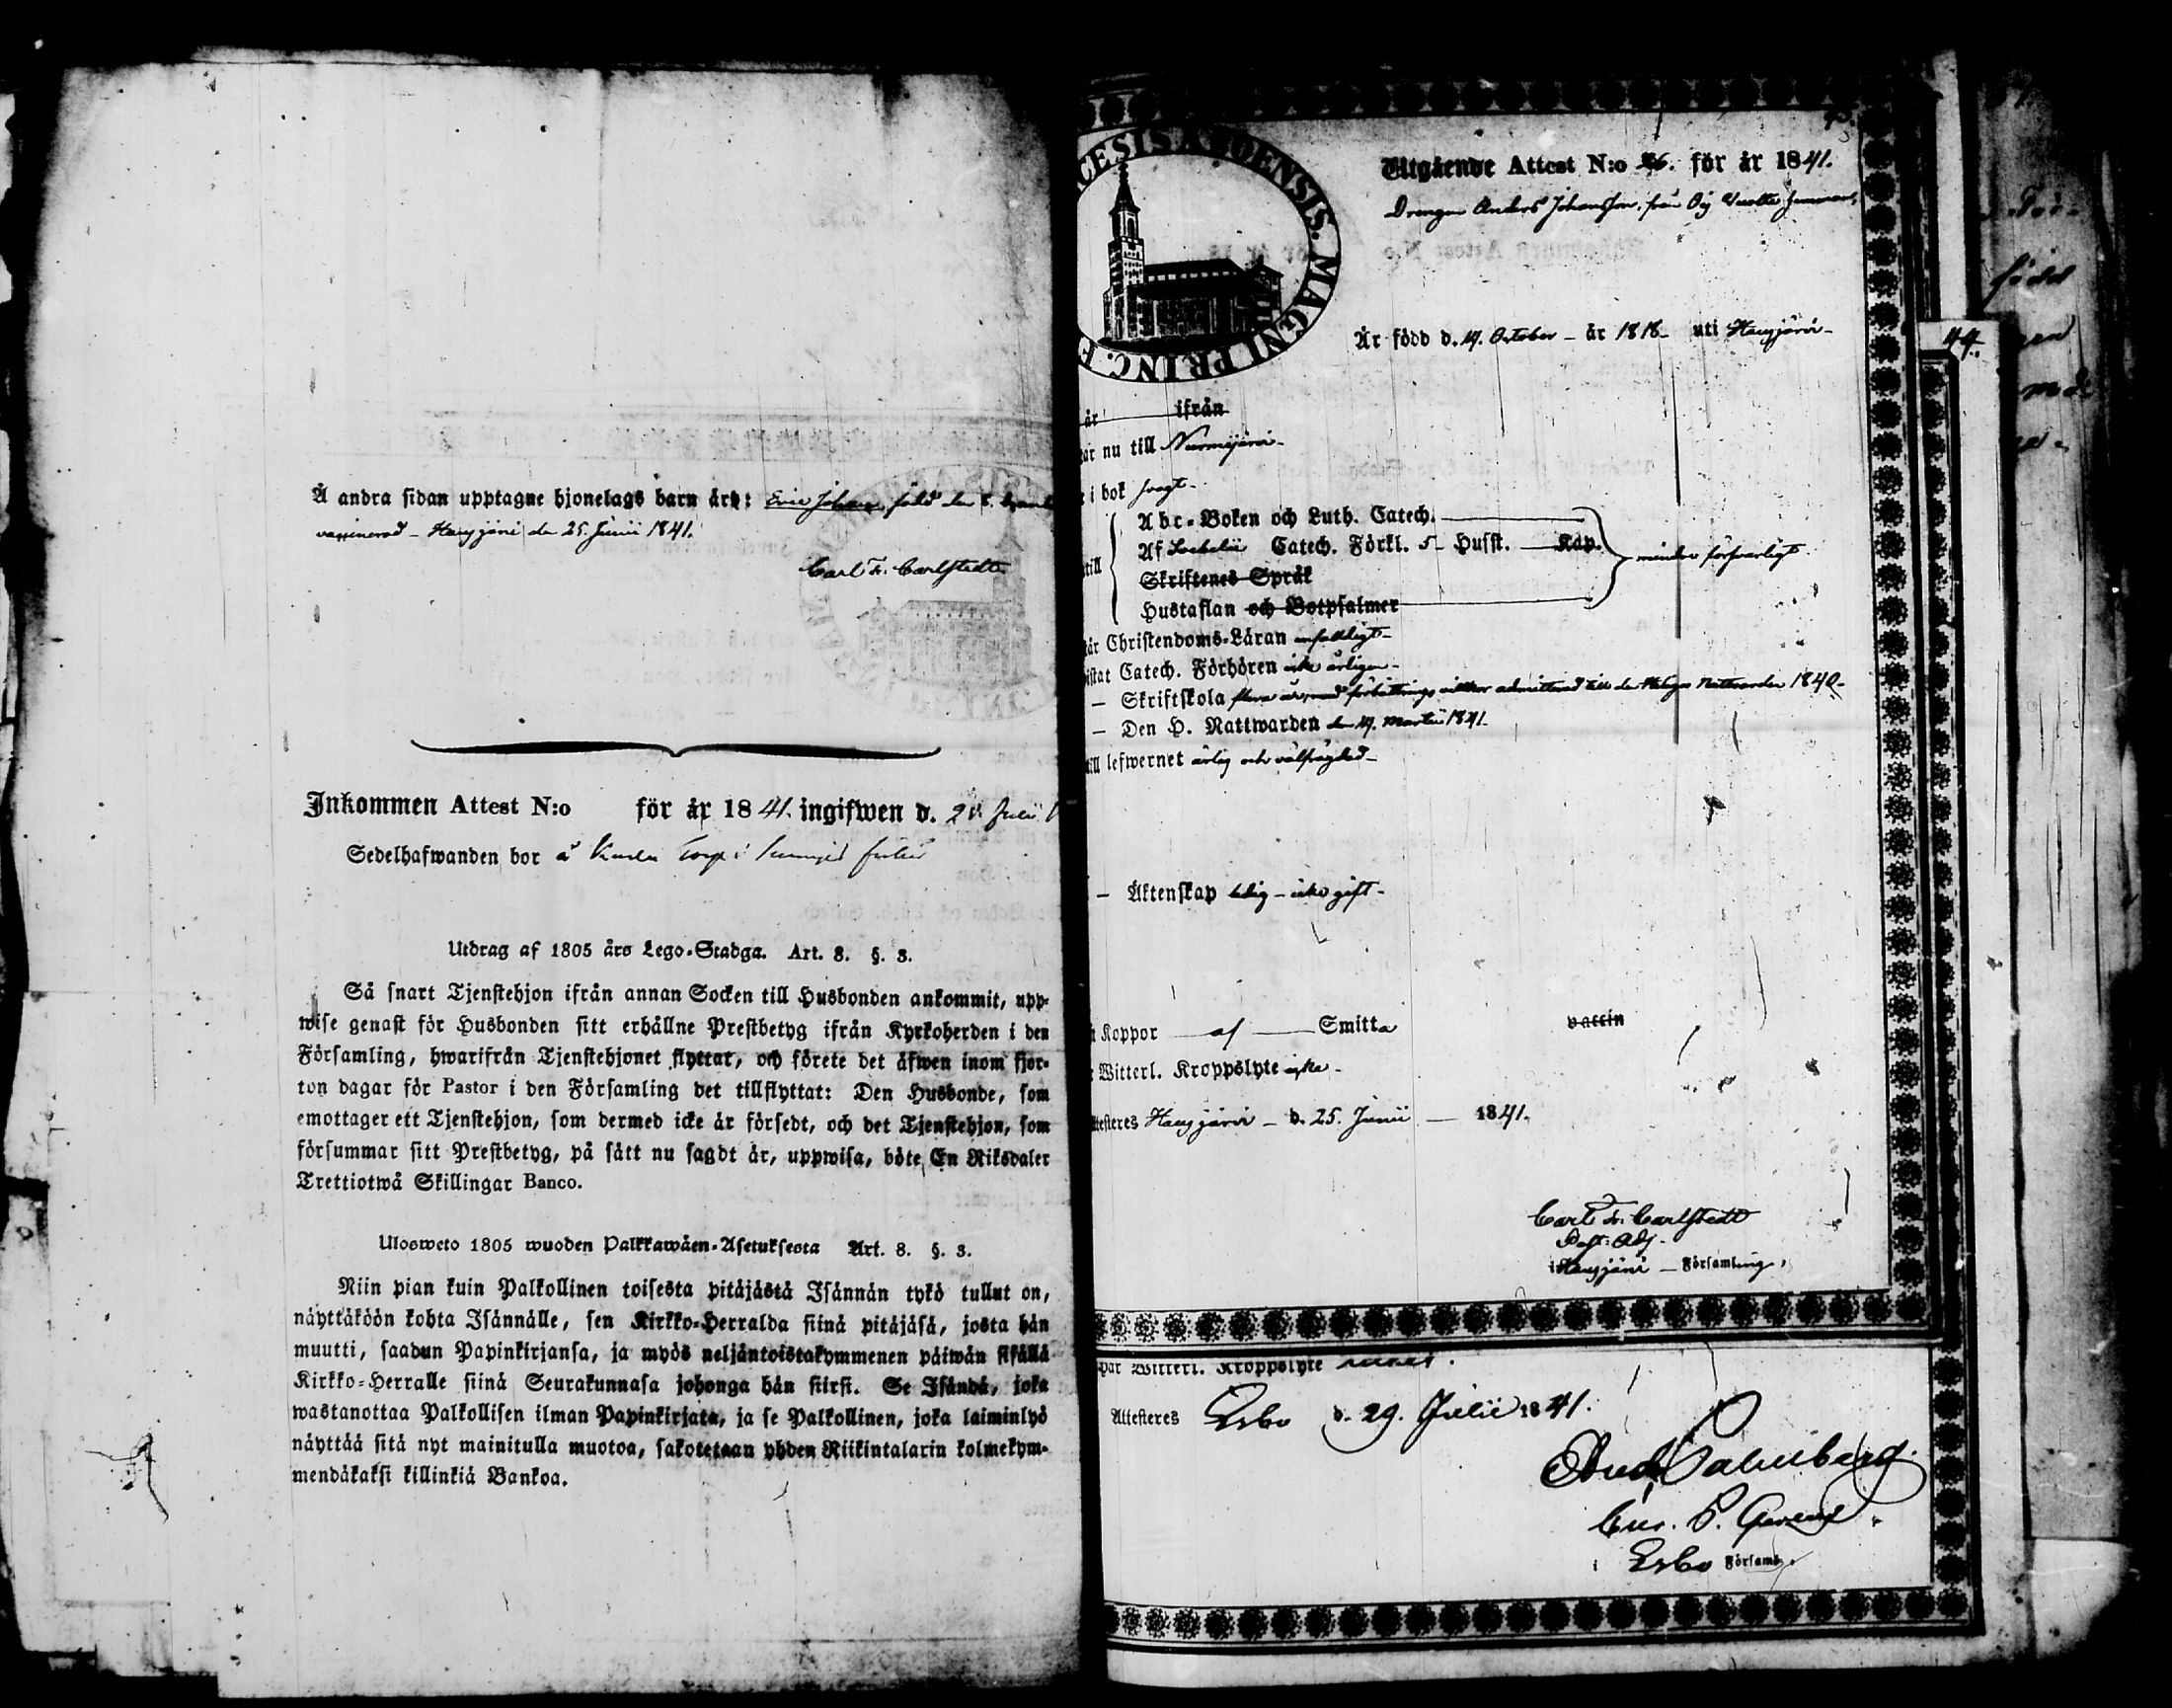 Å andra sidan upptagne hjonelags barn äro: född den 8.
vaccinerad – Hausjärvi den 25. Junii 1841.
Carl Fr. Carlstedt
Inkommen Attest N:o för år 1841. ingifwen d. Julii
Sedelhafwanden bor å Torp i
Utdrag af 1805 års Lego-Stadga. Art. 8. §. 3.
Så snart Tjenstehjon ifrån annan Socken till Husbonden ankommit, upp-
wise genast för Husbonden sitt erhållne Prestbetyg ifrån Kyrkoherden i den
Församling, hwarifrån Tjenstehjonet flyttat, och förete det äfwen inom fjor-
ton dagar för Pastor i den Församling det tillflyttat: Den Husbonde, som
emottager ett Tjenstehjon, som dermed icke är försedt, och det Tjenstehjon, som
försummar sitt Prestbetyg, på sätt nu sagdt är, uppwisa, böte En Riksdaler
Trettiotwå Skillingar Banco.
Ulosweto 1805 wuoden Palkkawäen-Asetuksesta Art. 8. §. 3.
Niin pian kuin Palkollinen toisesta pitäjästä Isännän tykö tullut on,
näyttäköön kohta Isännälle, sen Kirkko-Herralda siinä pitäjäsä, josta hän
muutti, saadun Papinkirjansa, ja myös neljäntoistakymmenen päiwän sisällä
Kirkko-Herralle siinä Seurakunnasa johonga hän siirsi. Se Isändä, joka
wastanottaa Palkollisen ilman Papinkirjata, ja se Palkollinen, joka laiminlyö
näyttää sitä nyt mainitulla muotoa, sakotetaan yhden Riikintalarin kolmekym-
mendäkaksi killinkiä Bankoa.
CESIS ABOENSIS. MAGNI PRINC. F
Utgående Attest N:o 26. för år 1841.
Drengen Anders Johansson, från
Är född d. 19. October – år 1818 – uti Hausjärvi –
år ifrån
ar nu till Nurmijärvi –
i bok svagt –
till
Abc-Boken och Luth. Catech.
Af Sebelii Catech. Förkl. 5 – Husst. Kap. mindre försvarligt
Skriftenes Språk
Hustaflan och Botpsalmer
år Christendoms-Läran enfaldigt –
istat Catech. Förhören icke årligen –
– Skriftskola flera år, med förbättrings villkor admitterad till den Heliga Nattvarden 1840 –
– Den H. Nattwarden den 19. Martii 1841 –
ill lefwernet ärlig och välfrägdad –
– Äktenskap ledig – icke gift –
t Koppor af Smitta vaccin
Witterl. Kroppslyte icke –
ttesteres Hausjärvi – d. 25. Junii – 1841.
Carl Fr. Carlstedt
Past: Adj.
i Hausjärvi – Församling,
44.
har Witterl. Kroppslyte
Attesteres Esbo d. 29. Julii 1841.
i Esbo Församl.
född